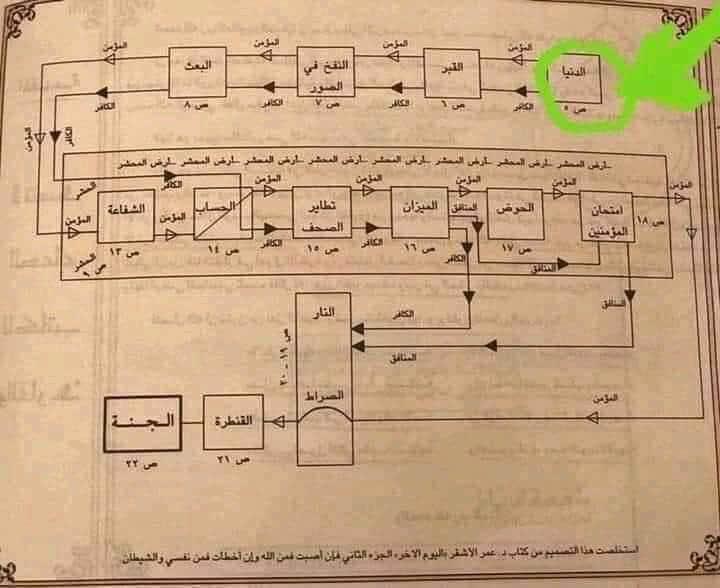 المؤمن المؤمن المؤمن المؤمن
الدنيا القبر النفخ في الصور البعث
ص ٥ ص ٦ ص ٧ ص ٨
الكافر الكافر الكافر الكافر
المؤمن الكافر
ـ ارض المحشر ـ ارض المحشر ـ ارض المحشر ـ ارض المحشر ـ ارض المحشر ـ ارض المحشر ـ ارض المحشر ـ ارض المحشر
المحشر الكافر المؤمن المؤمن المؤمن المؤمن المؤمن
المؤمن الشفاعة المؤمن الحساب تطاير الصحف الميزان المنافق الحوض امتحان المؤمنين ص ١٨
المحشر ص ٩ ص ١٣ ص ١٤ ص ١٥ ص ١٦ ص ١٧
الكافر الكافر الكافر المنافق
المنافق
النار
الكافر
ص ١٩ ـ ٢٠
المنافق
الصراط المؤمن
الجنة القنطرة
ص ٢٢ ص ٢١
استخلصت هذا التصميم من كتاب د. عمر الأشقر «اليوم الآخر» الجزء الثاني فإن أصبت فمن الله وإن أخطأت فمن نفسي والشيطان